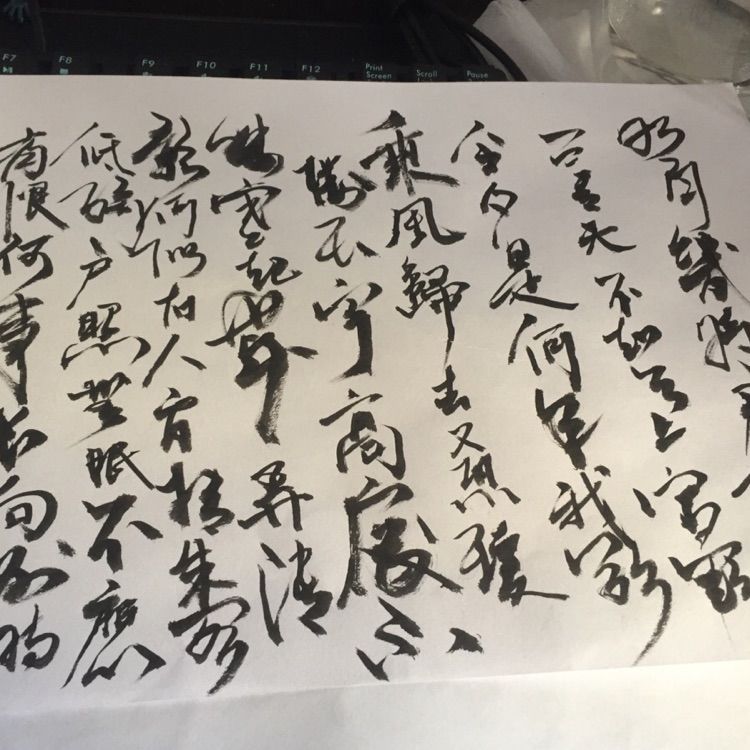 F7 F8 F9 F10 F11 F12 Print Screen Scroll Pause
明月幾時有
问青天不知天上宫阙
今夕是何年我欲
乘風歸去又恐瓊
樓玉宇高處不
勝寒起舞弄清
影何似在人间转朱阁
低绮户照無眠不應
有恨何事长向别时